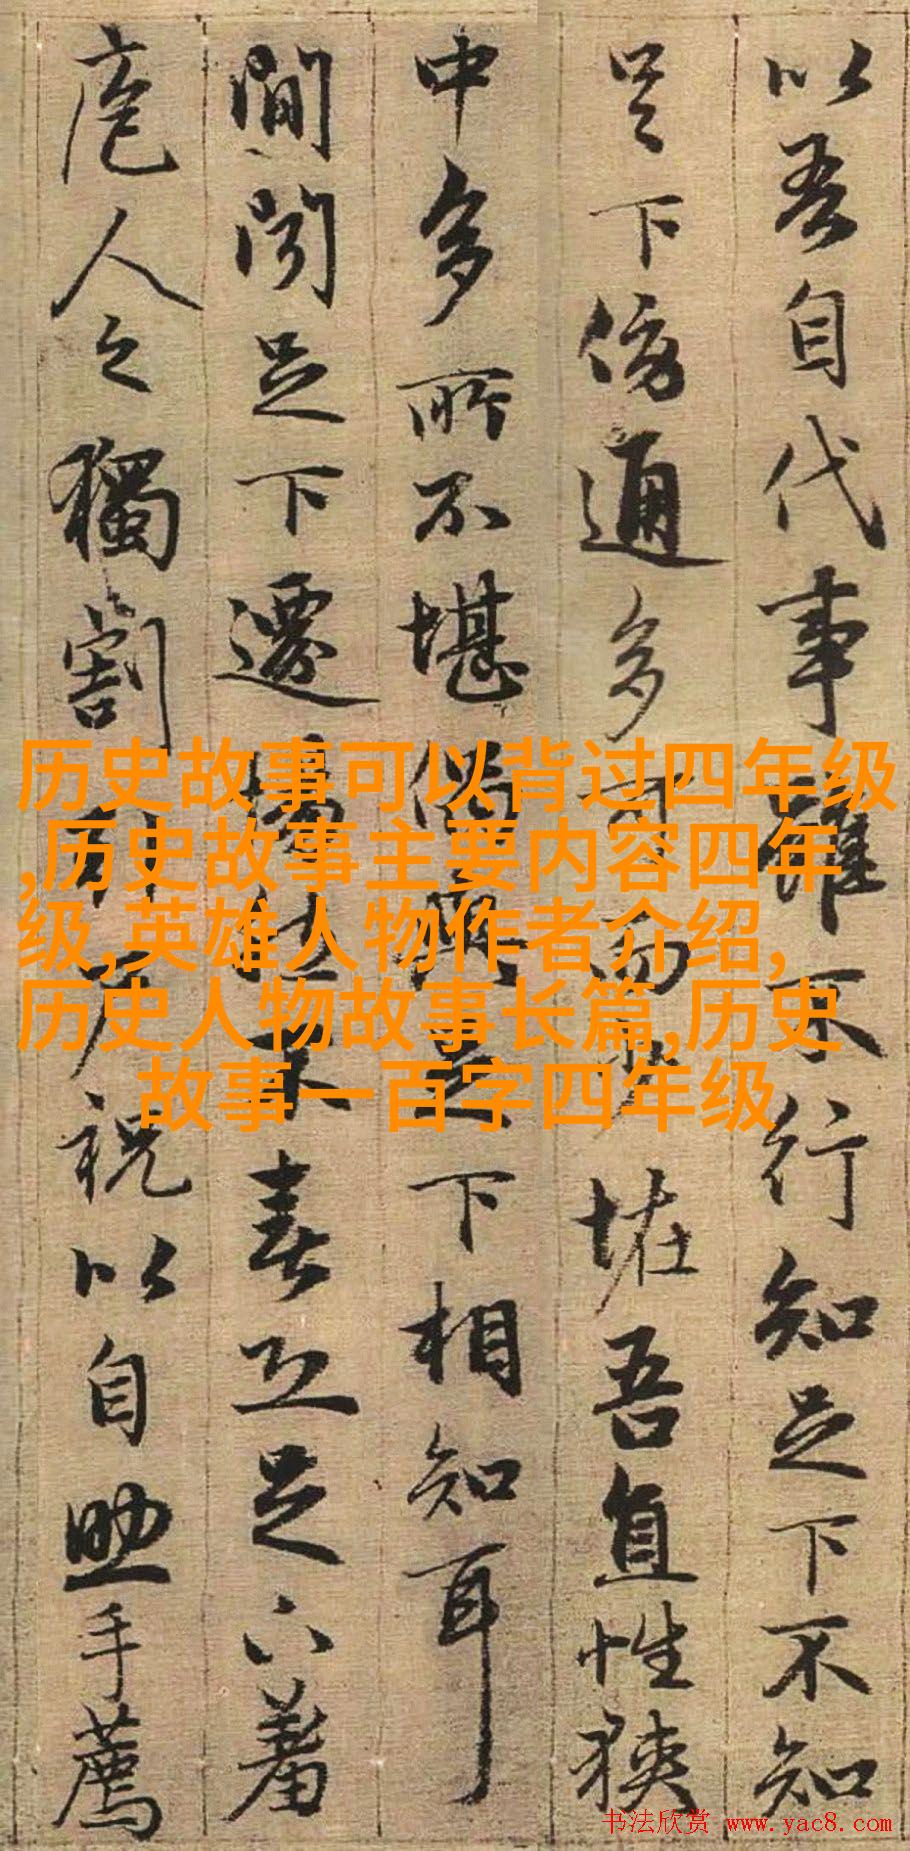 以吾自代事雖不行知足下不知
足下傍通多可而少恠吾直性狹
中多所不堪偶與足下相知耳
間聞足下遷惕然不喜恐足下羞
庖人之獨割引尸祝以自助手薦
历史故事可以背过四年级
,历史故事主要内容四年
级,英雄人物作者介绍,
历史人物故事长篇,历史
故事一百字四年级
书法欣赏 www.yac8.com